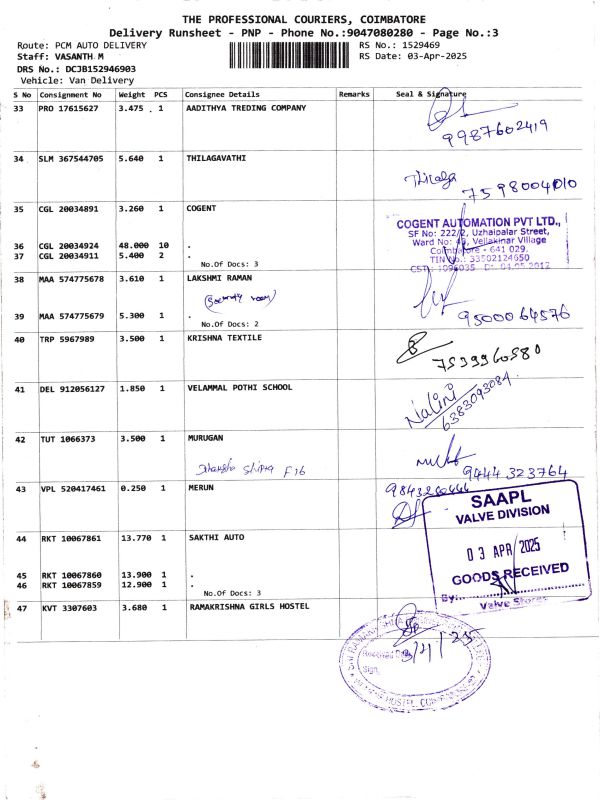 THE PROFESSIONAL COURIERS, COIMBATORE
Delivery Runsheet - PNP - Phone No.:9047080280 - Page No.:3
Route: PCM AUTO DELIVERY
RS No.: 1529469
Staff: VASANTH M
RS Date: 03-Apr-2025
DRS No.: DCJB152946903
Vehicle: Van Delivery
S No Consignment No Weight PCS Consignee Details Remarks Seal & Signature
33 PRO 17615627 3.475 1 AADITHYA TREDING COMPANY
9987602419
34 SLM 367544705 5.640 1 THILAGAVATHI
Thilaga 7598004010
35 CGL 20034891 3.260 1 COGENT
COGENT AUTOMATION PVT LTD.,
SF No: 222/2, Uzhaipalar Street,
Ward No: 45, Vellakinar Village
Coimbatore - 641 029.
TIN No.: 33502124650
CST: 1096035 Dt: 04.05.2012
36 CGL 20034924 48.000 10 .
37 CGL 20034911 5.400 2 .
No.Of Docs: 3
38 MAA 574775678 3.610 1 LAKSHMI RAMAN
9500064576
39 MAA 574775679 5.300 1 .
No.Of Docs: 2
40 TRP 5967989 3.500 1 KRISHNA TEXTILE
7539960580
41 DEL 912056127 1.850 1 VELAMMAL POTHI SCHOOL
Nalini
6383093084
42 TUT 1066373 3.500 1 MURUGAN
F16
9444 323764
43 VPL 520417461 0.250 1 MERUN
SAAPL
VALVE DIVISION
03 APR 2025
GOODS RECEIVED
By:
Valve Stores
44 RKT 10067861 13.770 1 SAKTHI AUTO
45 RKT 10067860 13.900 1 .
46 RKT 10067859 12.900 1 .
No.Of Docs: 3
47 KVT 3307603 3.680 1 RAMAKRISHNA GIRLS HOSTEL
3/4/25
Sign.